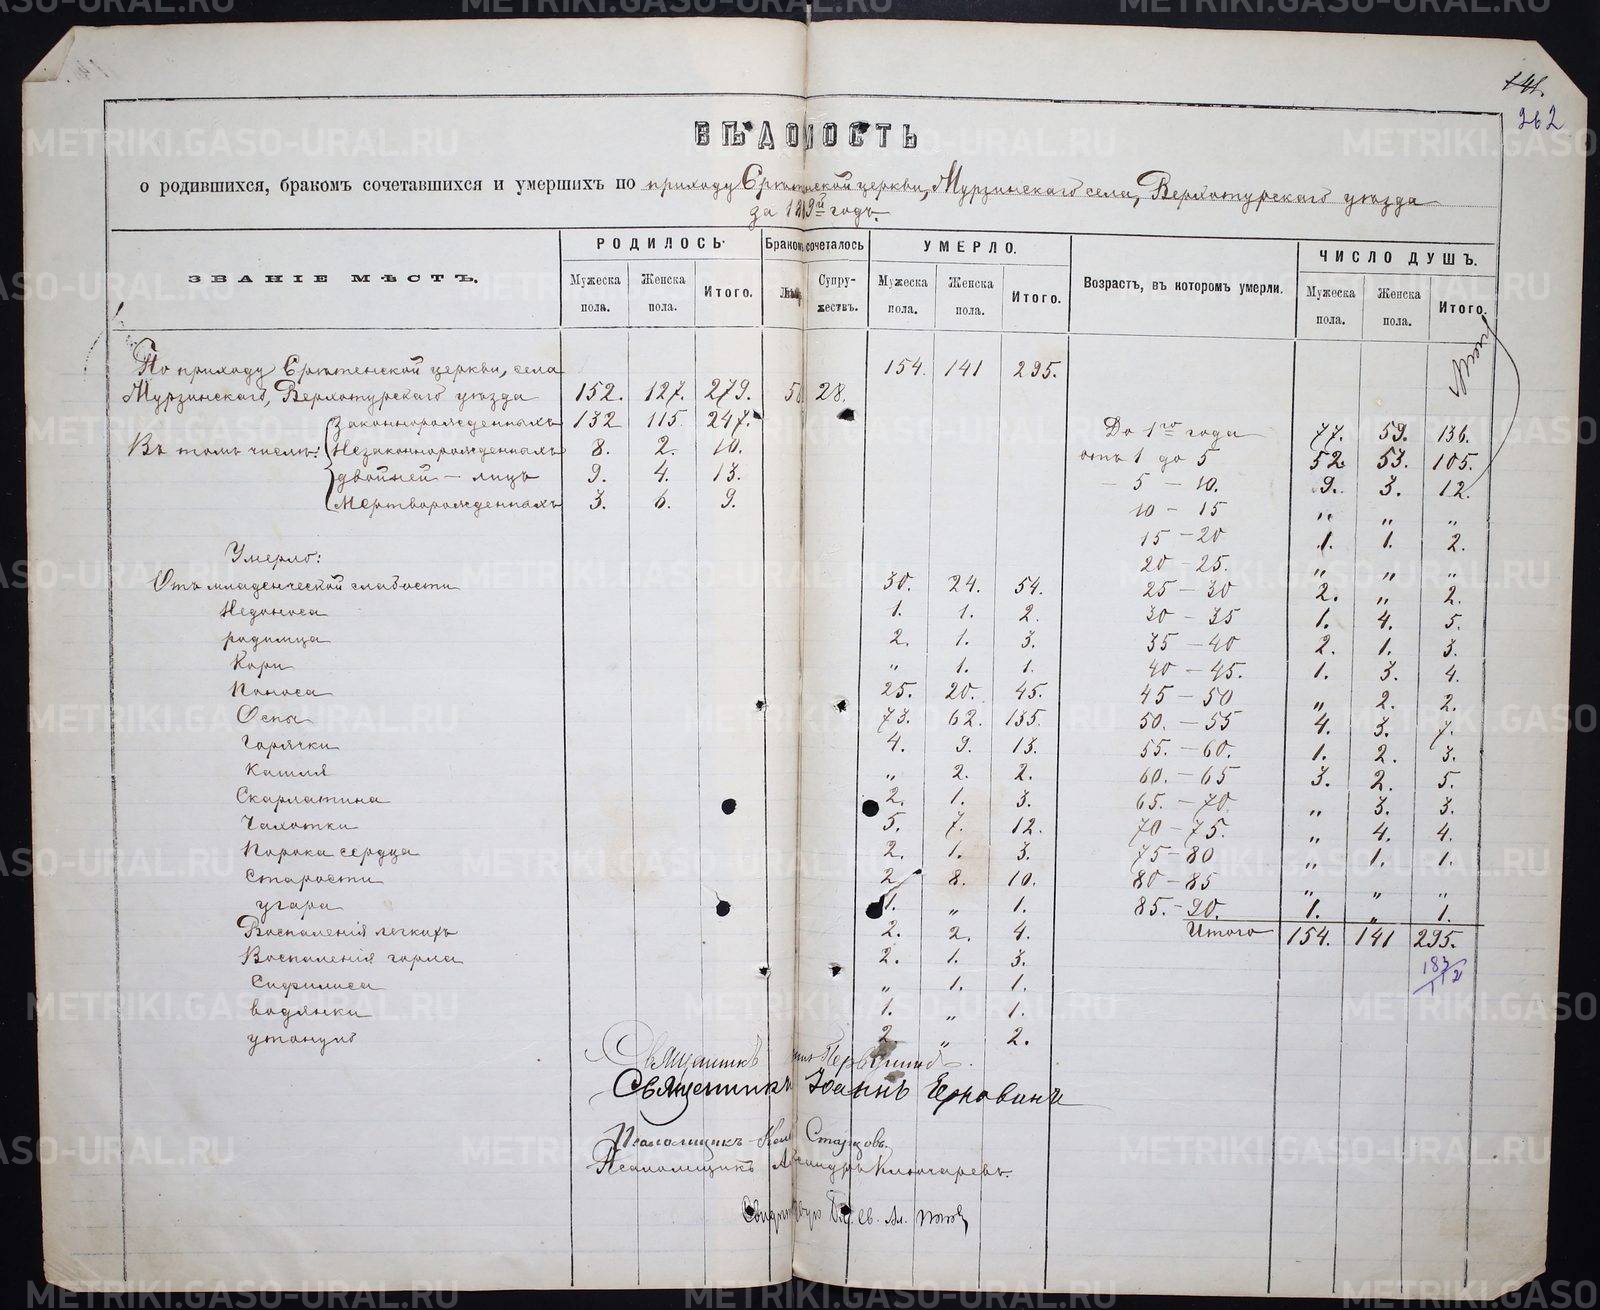 141.
262
ВѢДОМОСТЬ
о родившихся, бракомъ сочетавшихся и умершихъ по приходу Срѣтенской церкви, Мурзинскаго села, Верхотурскаго уѣзда
за 1889й годъ.
ЗВАНІЕ МѢСТЪ. РОДИЛОСЬ. Бракомъ сочеталось УМЕРЛО. Возрастъ, въ которомъ умерли. ЧИСЛО ДУШЪ.
Мужеска пола. Женска пола. Итого. Лицъ Супружествъ. Мужеска пола. Женска пола. Итого. Мужеска пола. Женска пола. Итого.
По приходу Срѣтенской церкви, села 154. 141 295.
Мурзинскаго, Верхотурскаго уѣзда 152. 127. 279. 28.
Въ томъ числѣ:
Законнорожденныхъ 132 115. 247.
Незаконнорожденныхъ 8. 2. 10.
двойней - лицъ 9. 4. 13.
Мертворожденныхъ 3. 6. 9.
Умерло:
Отъ младенческой слабости 30. 24. 54.
Недоноса 1. 1. 2.
родимца 2. 1. 3.
Кори „ 1. 1.
Поноса 25. 20. 45.
Оспы 73. 62. 135.
Горячки 4. 9. 13.
Кашля „ 2. 2.
Скарлатина 2. 1. 3.
Чахотки 5. 7. 12.
Порока сердца 2. 1. 3.
Старости 2. 8. 10.
угара 1. „ 1.
Воспаленія легкихъ 2. 2. 4.
Воспаленія горла 2. 1. 3.
Сифилиса „ 1. 1.
водянки 1. „ 1.
утонуло 2 „ 2.
До 1го года 77. 59. 136.
отъ 1 до 5 52. 53. 105.
- 5 - 10. 9. 3. 12.
10 - 15 „ „ „
15 - 20 1. 1. 2.
20 - 25. „ „ „
25 - 30 2. „ 2.
30 - 35 1. 4. 5.
35 - 40 2. 1. 3.
40 - 45. 1. 3. 4.
45 - 50 „ 2. 2.
50. - 55 4. 3. 7.
55. - 60. 1. 2. 3.
60. - 65 3. 2. 5.
65. - 70 „ 3. 3.
70 - 75. „ 4. 4.
75 - 80 „ 1. 1.
80 - 85 „ „ „
85. - 90. 1. „ 1.
Итого 154. 141 295.
183
112
Священникъ
Священникъ Іоаннъ
Псаломщикъ Старцовъ.
Псаломщикъ Александръ Ключаревъ.
METRIKI.GASO-URAL.RU